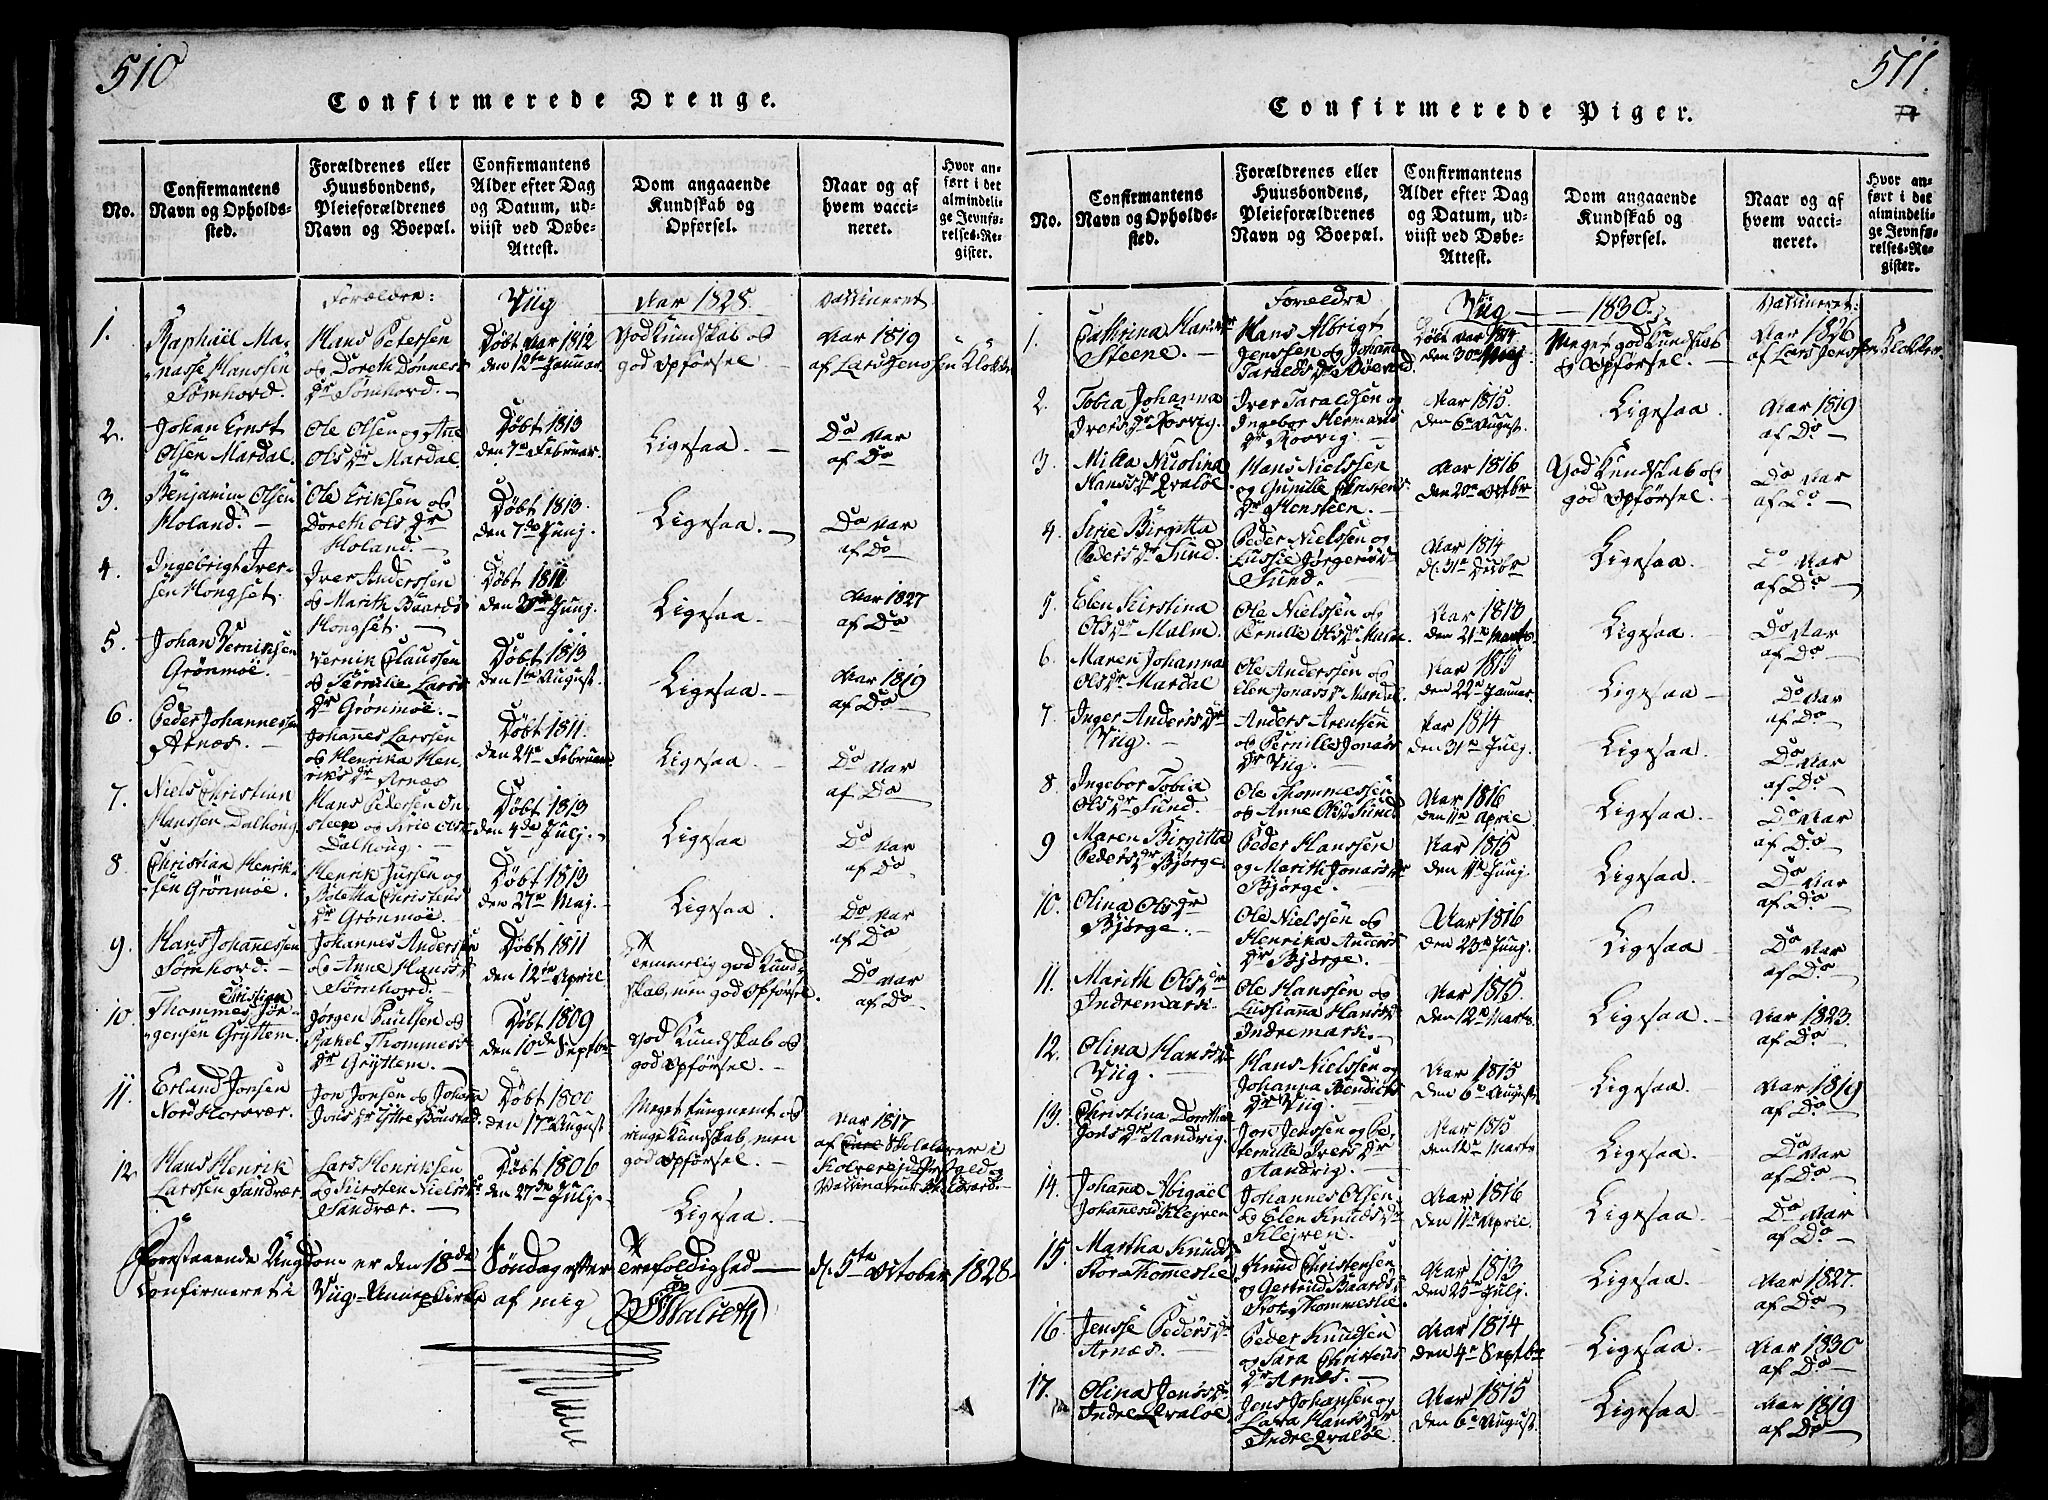 510
Confirmerede Drenge.
No.
Confirmantens
Navn og Opholds-
sted.
Forældrenes eller
Huusbondens,
Pleieforældrenes
Navn og Boepæl.
Confirmantens
Alder efter Dag
og Datum, ud-
viist ved Døbe-
Attest.
Dom angaaende
Kundskab og
Opførsel.
Naar og af
hvem vacci-
neret.
Hvor an-
ført i det
almindeli-
ge Jevnfø-
relses-Re-
gister.
Forældre:
Viig
Aar 1828.
Vaccineret
1.
Raphäel Ma-
nasse Hanssen
Sømhord.
Hans Petersen
og Doreth Dønnes
Dr Sømhord.
Døbt Aar 1812
den 12te Januar.
God Kundskab og
god Opførsel.
Aar 1819
af Lars Jenssen Klokker
2.
Johan Ernst
Olsen Mardal.
Ole Olsen og Ane
Ols Dr Mardal.
Døbt 1813
den 7de Februar.
Ligesaa.
Do Aar
af Do
3.
Benjamin Olsen
Holand.
Ole Eriksen og
Doreth Ols Dr
Holand.
Døbt 1813.
den 7de Junj.
Ligesaa.
Do Aar
af Do
4.
Ingebrigt Iver-
sen Hongset.
Iver Anderssen
og Marith Baards
Hongset.
Døbt 1811
Junj.
Ligesaa.
Aar 1827
af Do
5.
Johan Verniksen
Grønmoe.
Vernik Claussen
og Pernille Lars
Dr Grønmoe.
Døbt 1813
den 1te August.
Ligesaa.
Aar 1819
af Do
6.
Peder Johannessen
Arnæs.
Johannes Larssen
og Henrika Hen-
riks Dr Arnæs
Døbt 1811.
den 24de Februar
Ligesaa
Do Aar
af Do
7.
Niels Christian
Hanssen Dalhoug
Hans Pedersen On-
steen og Sirie Ols
Dalhoug.
Døbt 1813
den 4de Julj.
Ligesaa
Do Aar
af Do
8.
Christian Henrik-
sen Grønmoe.
Henrik Jussen og
Boletha Christens
Dr Grønmoe.
Døbt 1813
den 27de Maj.
Ligesaa.
Do Aar
af Do
9.
Hans Johannessen
Sømhord.
Johannes Anderssen
og Anne Hans
Sømhord.
Døbt 1811
den 12te April
Temmerlig god Kund-
skab, men god Opførsel.
Do Aar
af Do
10.
Christian
Thommes Jør-
gensen Gryttem.
Jørgen Paulsen og
Rakel Thommes
Dr Gryttem.
Døbt 1809
den 10de Septbr
God Kundskab og
god Opførsel.
11.
Erland Jonsen
Nord Horsvær.
Jon Jonsen og Johana
Jons Dr Ytre Bonstad.
Døbt 1800
den 17de August
Meget tungnemt og
ringe Kundskab, men
god Opførsel.
Aar 1817
12
Hans Henrik
Larssen Sandvær.
Lars Henriksen
og Kirsten Niels
Sandvær.
Døbt 1806
den 27de Julj.
Ligesaa.
Forestaaende Ungdom er den 18de Søndag efter Trefoldighed d. 5te October 1828
Confirmeret i Viig Annex Kirke af mig
511.
Confirmerede Piger.
No.
Confirmantens
Navn og Opholds-
sted.
Forældrenes eller
Huusbondens,
Pleieforældrenes
Navn og Boepæl.
Confirmantens
Alder efter Dag
og Datum, ud-
viist ved Døbe-
Attest.
Dom angaaende
Kundskab og
Opførsel.
Naar og af
hvem vacci-
neret.
Hvor an-
ført i det
almindeli-
ge Jevnfø-
relses-Re-
gister.
Forældre
Viig
1830.
Vaccineret:
1.
Cathrina Hans
Steene.
Hans Albrigt
Jenssen og Johana
Taralds Dr
Døbt Aar 1814
den 30te Maj.
Meget god Kundskab
og Opførsel.
Aar 1826
af Lars Jenssen Klokker
2.
Tobia Johanna
Ivers Dr Rosvig.
Iver Taraldsen og
Ingebor Hermans
Dr Rosvig.
Aar 1815.
den 6te August.
Ligesaa.
Aar 1819
af Do
3.
Milla Nicolina
Hans Dr Qvaløe
Hans Nielssen
og Gunille Christens
Dr Hensteen.
Aar 1816
den 20de Octbr
God Kundskab og
god Opførsel.
Do Aar
af Do
4.
Sirie Birgitta
Peders Dr Sund.
Peder Nielssen og
Lussie Jørgens
Sund.
Aar 1814
d. 31te Decbr
Ligesaa.
Do Aar
af Do
5.
Elen Kirstina
Ols Dr Malm.
Ole Nielssen og
Pernille Ols Dr Malm.
Aar 1813
den 21de Marts.
Ligesaa.
Do Aar
af Do
6.
Maren Johanna
Ols Dr Mardal
Ole Anderssen og
Elen Jonas Dr Mardal.
Aar 1815
den 22de Januar.
Ligesaa
Do Aar
af Do
7.
Inger Anders Dr
Viig.
Anders Arentsen
og Pernille Jonas
Dr Viig.
Aar 1814
den 31te Julj.
Ligesaa
Do Aar
af Do
8
Ingebor Tobia
Ols Dr Sund.
Ole Thommessen
og Anne Ols Dr Sund
Aar 1816
den 11te April
Ligesaa.
Do Aar
af Do
9
Maren Birgitta
Peders Dr Bjørge.
Peder Hanssen
og Marith Jonas Dr
Bjørge.
Aar 1815
den 11te Junj.
Ligesaa.
Do Aar
af Do
10.
Olina Ols Dr
Bjørge.
Ole Nielssen og
Henrika Anders
Dr Bjørge.
Aar 1816
den 23de Junj.
Ligesaa
Do Aar
af Do
11.
Marith Ols Dr
Indremark.
Ole Hanssen og
Lussianna Hans
Indremark.
Aar 1815.
den 12te Marts
Ligesaa.
Aar 1823.
af Do
12.
Olina Hans Dr
Viig.
Hans Nielssen og
Johanna Bendicts
Dr Viig.
Aar 1815
den 6te August
Ligesaa.
Aar 1819
af Do
13.
Christina Dorothea
Jons Dr Sandvig.
Jon Jenssen og Pe-
rnille Ivers Dr
Sandvig.
Aar 1815
den 12te Marts
Ligesaa.
Do Aar
af Do
14.
Johana Abigael
Johannes Dr Klejven
Johannes Olsen
og Elen Knuds Dr
Klejven.
Aar 1816
den 11te April.
Ligesaa.
Do Aar
af Do
15.
Martha Knuds
Stor Thommeslie
Knud Christensen
og Gertrud Baards
Stor Thommeslie.
Aar 1813
den 25de Julj.
Ligesaa.
Aar 1827.
af Do
16.
Jensse Peders Dr
Arnæs.
Peder Knudsen
og Sara Christens
Dr Arnæs.
Aar 1814
den 4de Septbr
Ligesaa
Aar 1830
af Do
17.
Olina Jens Dr
Indre Qvaløe.
Jens Johansen og
Lava Hans Dr
Indre Qvaløe.
Aar 1815
den 6te August.
Ligesaa
Aar 1819
af Do